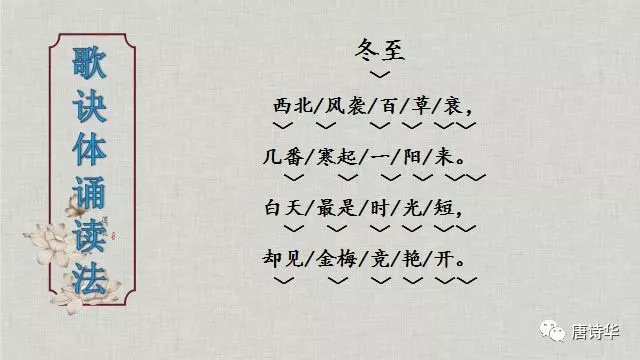 歌诀体诵读法
冬至
西北/风袭/百/草/衰，
几番/寒起/一/阳/来。
白天/最是/时/光/短，
却见/金梅/竞/艳/开。
唐诗华